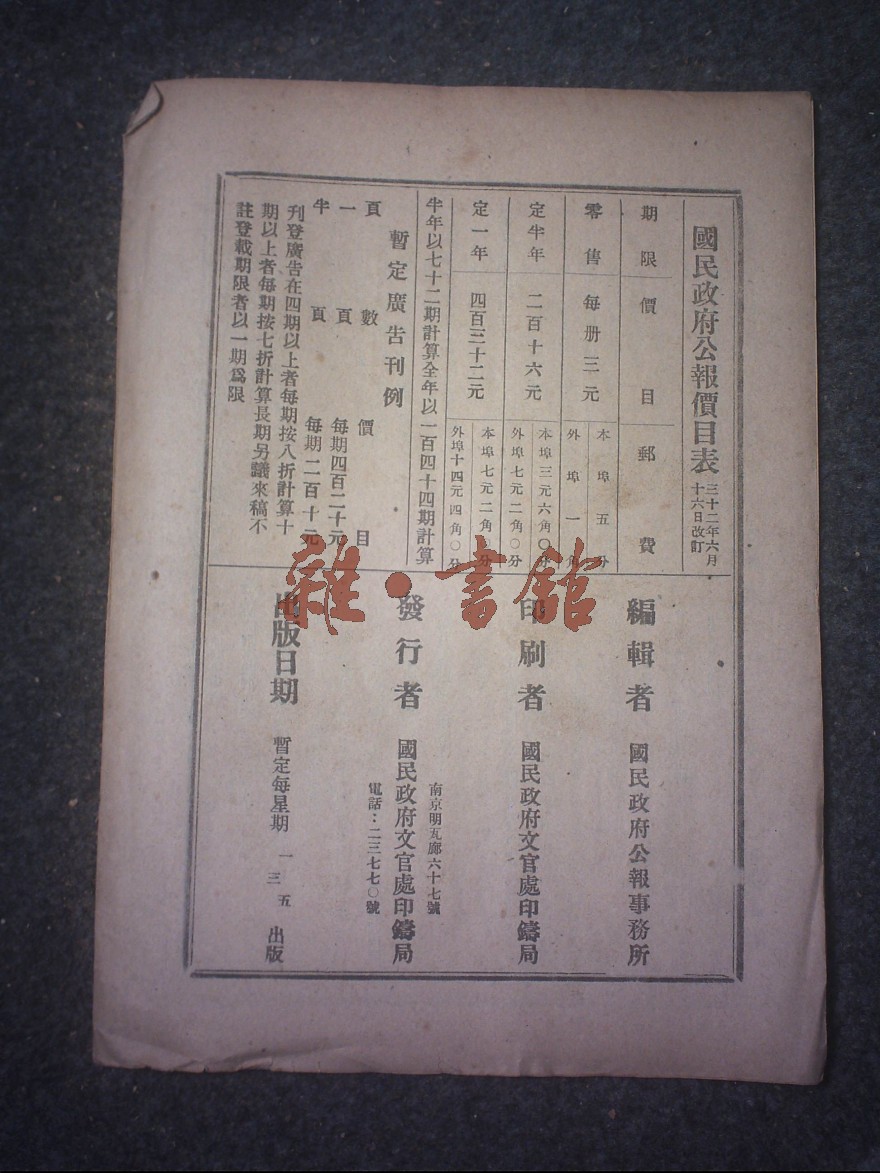 國民政府公報價目表
三十二年六月
十六日改訂
期限 價目 郵費
零售 每册三元
本埠五分
外埠一角
定半年 二百十六元
本埠三元六角〇分
外埠七元二角〇分
定一年 四百三十二元
本埠七元二角〇分
外埠十四元四角〇分
半年以七十二期計算全年以一百四十四期計算
暫定廣告刊例
頁數 價目
一頁 每期四百二十元
半頁 每期二百十元
刊登廣告在四期以上者每期按八折計算十
期以上者每期按七折計算長期另議來稿不
註登載期限者以一期爲限
編輯者 國民政府公報事務所
印刷者 國民政府文官處印鑄局
發行者 國民政府文官處印鑄局
南京明瓦廊六十七號
電話：二三七七〇號
出版日期 暫定每星期一三五出版
雜·書館